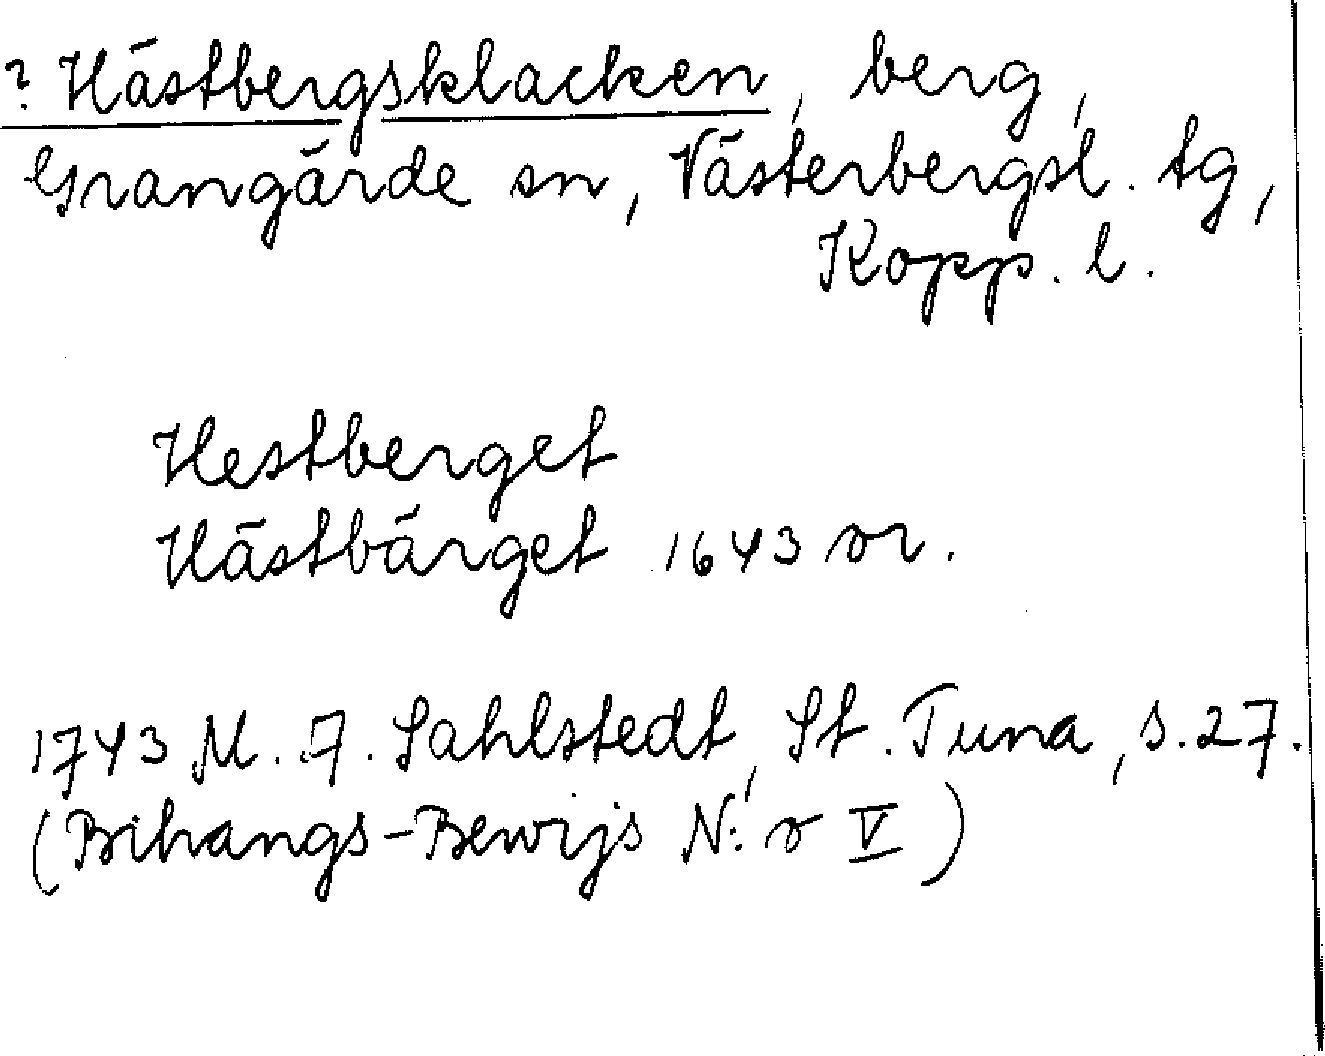 ? Hästbergsklacken, berg,
Grangärde sn, Västerbergsl. tg,
Kopp. l.
Hestberget
Hästbärget 1643 or.
1743 M. A. Sahlstedt, St. Tuna, s. 27.
(Bihangs-Bewijs N:o V)